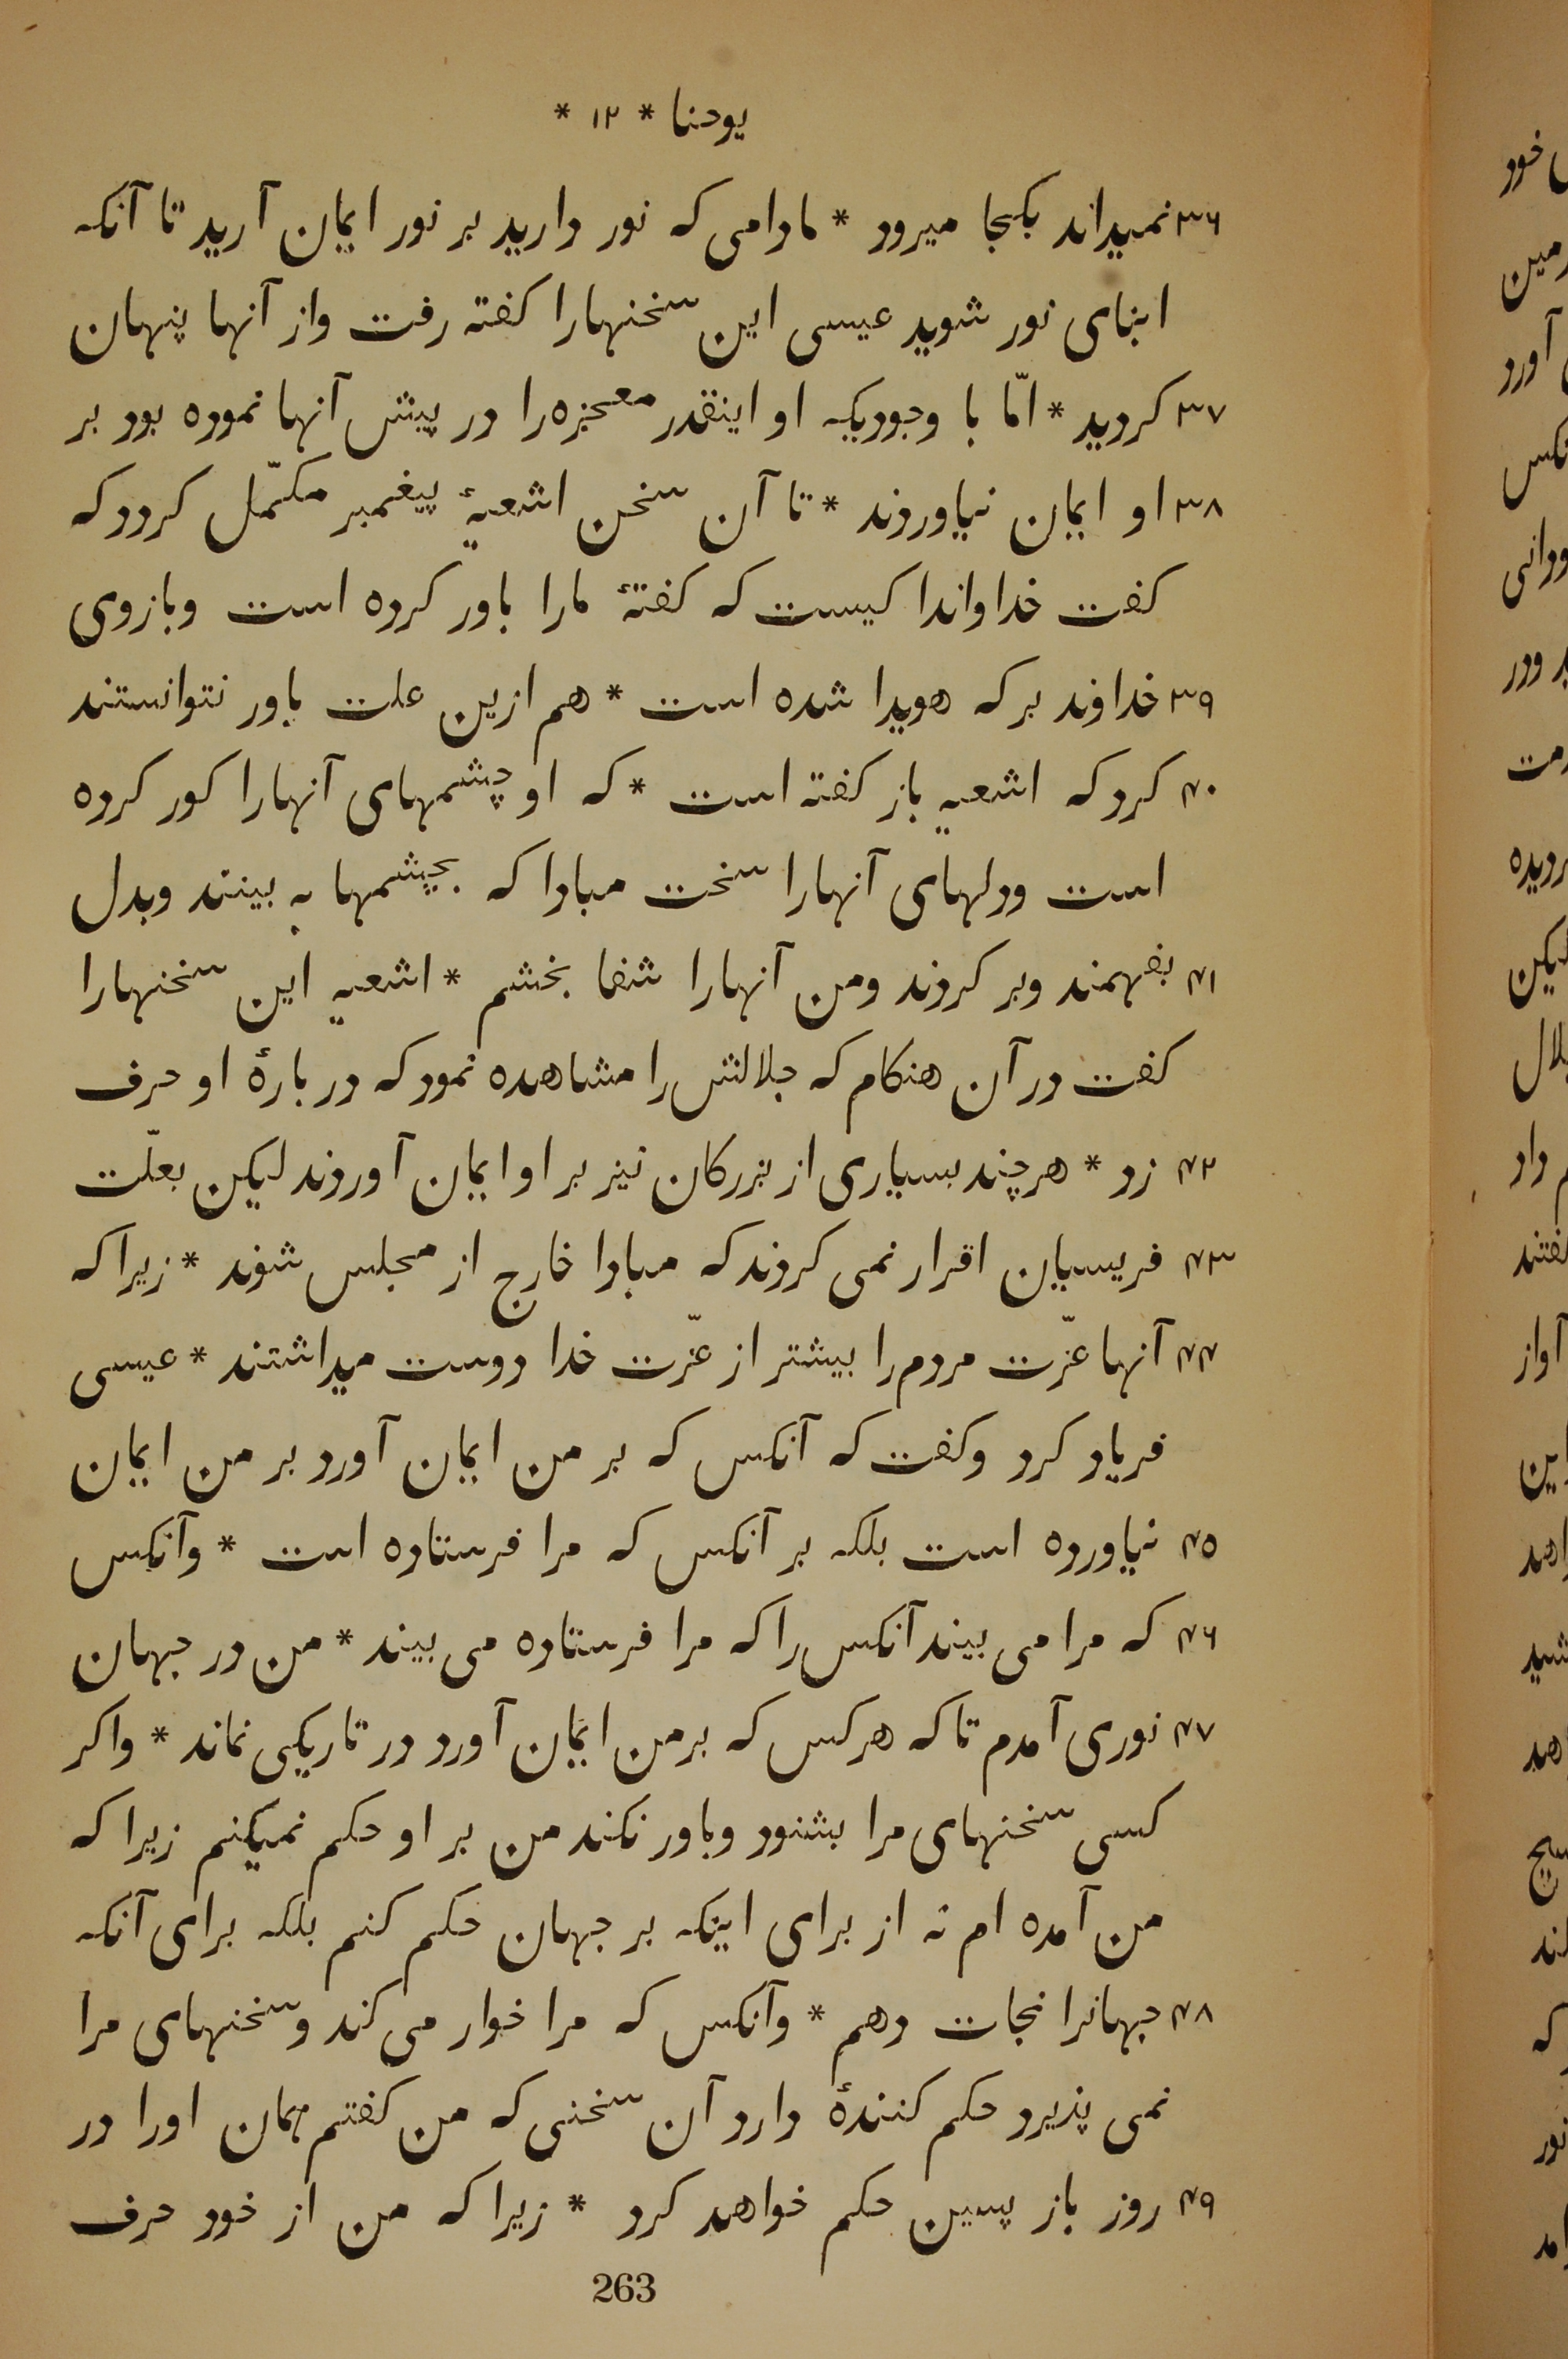 یوحنا * ۱۲ *
۳۶ نمیداند بکجا میرود * مادامی که نور دارید بر نور ایمان آرید تا آنکه
ابنای نور شوید عیسی این سخنهارا کفته رفت واز آنها پنهان
۳۷ کردید * امّا با وجودیکه او اینقدر معجزه را در پیش آنها نموده بود بر
۳۸ او ایمان نیاوردند * تا آن سخن اشعیهٔ پیغمبر مکمّل کردد که
کفت خداواندا کیست که کفتهٔ مارا باور کرده است وبازوی
۳۹ خداوند بر که هویدا شده است * هم ازین علت باور نتوانستند
۴۰ کرد که اشعیه باز کفته است * که او چشمهای آنهارا کور کرده
است ودلهای آنهارا سخت مبادا که بچشمها به بینند وبدل
۴۱ بفهمند وبر کردند ومن آنهارا شفا بخشم * اشعیه این سخنهارا
کفت در آن هنکام که جلالش را مشاهده نمود که در بارهٔ او حرف
۴۲ زد * هر چند بسیاری از بزرکان نیز بر او ایمان آوردند لیکن بعلّت
۴۳ فریسیان اقرار نمی کردند که مبادا خارج از مجلس شوند * زیرا که
۴۴ آنها عزّت مردم را بیشتر از عزّت خدا دوست میداشتند * عیسی
فریاد کرد وکفت که آنکس که بر من ایمان آورد بر من ایمان
۴۵ نیاورده است بلکه بر آنکس که مرا فرستاده است * وآنکس
۴۶ که مرا می بیند آنکس را که مرا فرستاده می بیند * من در جهان
۴۷ نوری آمدم تا که هر کس که بر من ایمان آورد در تاریکی نماند * واکر
کسی سخنهای مرا بشنود وباور نکند من بر او حکم نمیکنم زیرا که
من آمده ام نه از برای اینکه بر جهان حکم کنم بلکه برای آنکه
۴۸ جهانرا نجات دهم * وآنکس که مرا خوار می کند وسخنهای مرا
نمی پذیرد حکم کنندهٔ دارد آن سخنی که من کفتم همان اورا در
۴۹ روز باز پسین حکم خواهد کرد * زیرا که من از خود حرف
263